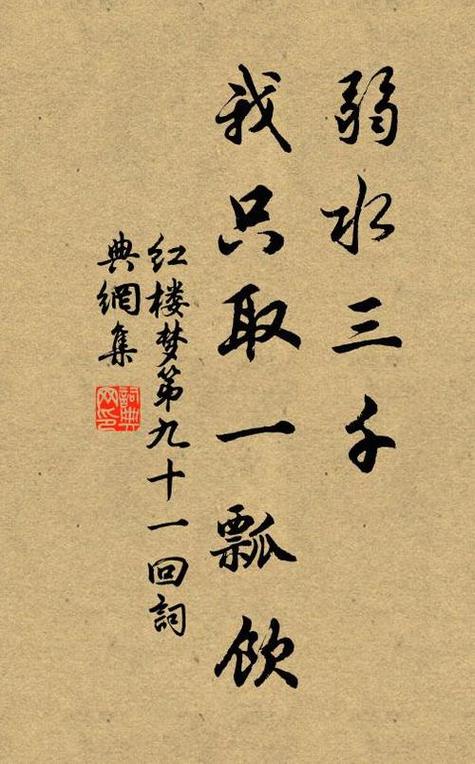 弱水三千
我只取一瓢饮
红楼梦第九十一回詞
典網集
詞典
网印